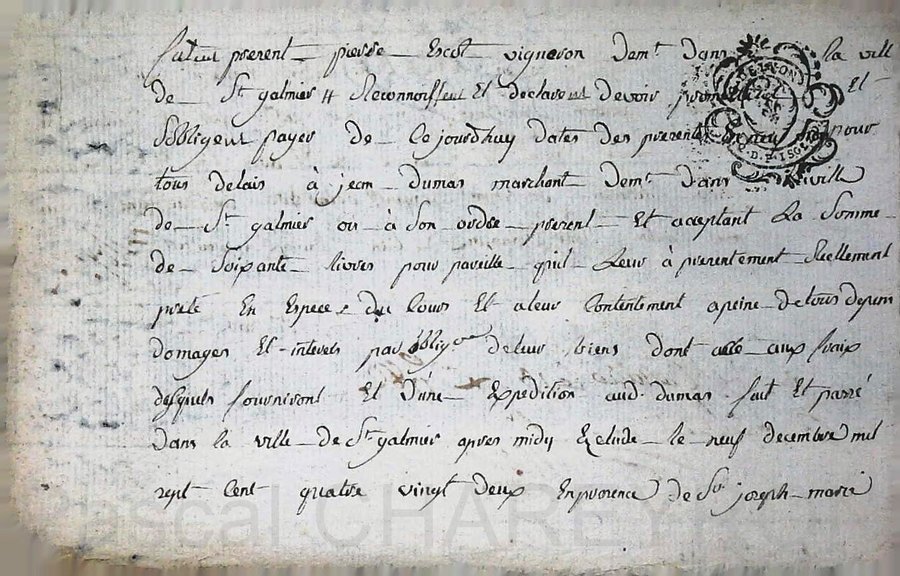 present pierre Escot vigneron demt dans la ville
de St galmier Reconnoissent Et declarent devoir promettent Et
sobligent payer de Ce jourdhuy dates des presentes pour
tous delais à jean dumas marchant demt dans ville
de St galmier ou à Son ordre present Et acceptant La Somme
de Soixante livres pour pareille quil Leur à presentement Reellement
preté En Espece du Cours Et a leur Contentement a peine de tous depens
domages Et interets par obligon de leur biens dont acte aux fraix
desquels fourniront Et d'une Expedition aud. dumas fait Et passé
dans la ville de St galmier apres midy Etude le neuf decembre mil
sept Cent quatre vingt deux En presence de Sr joseph marie
DE LYON